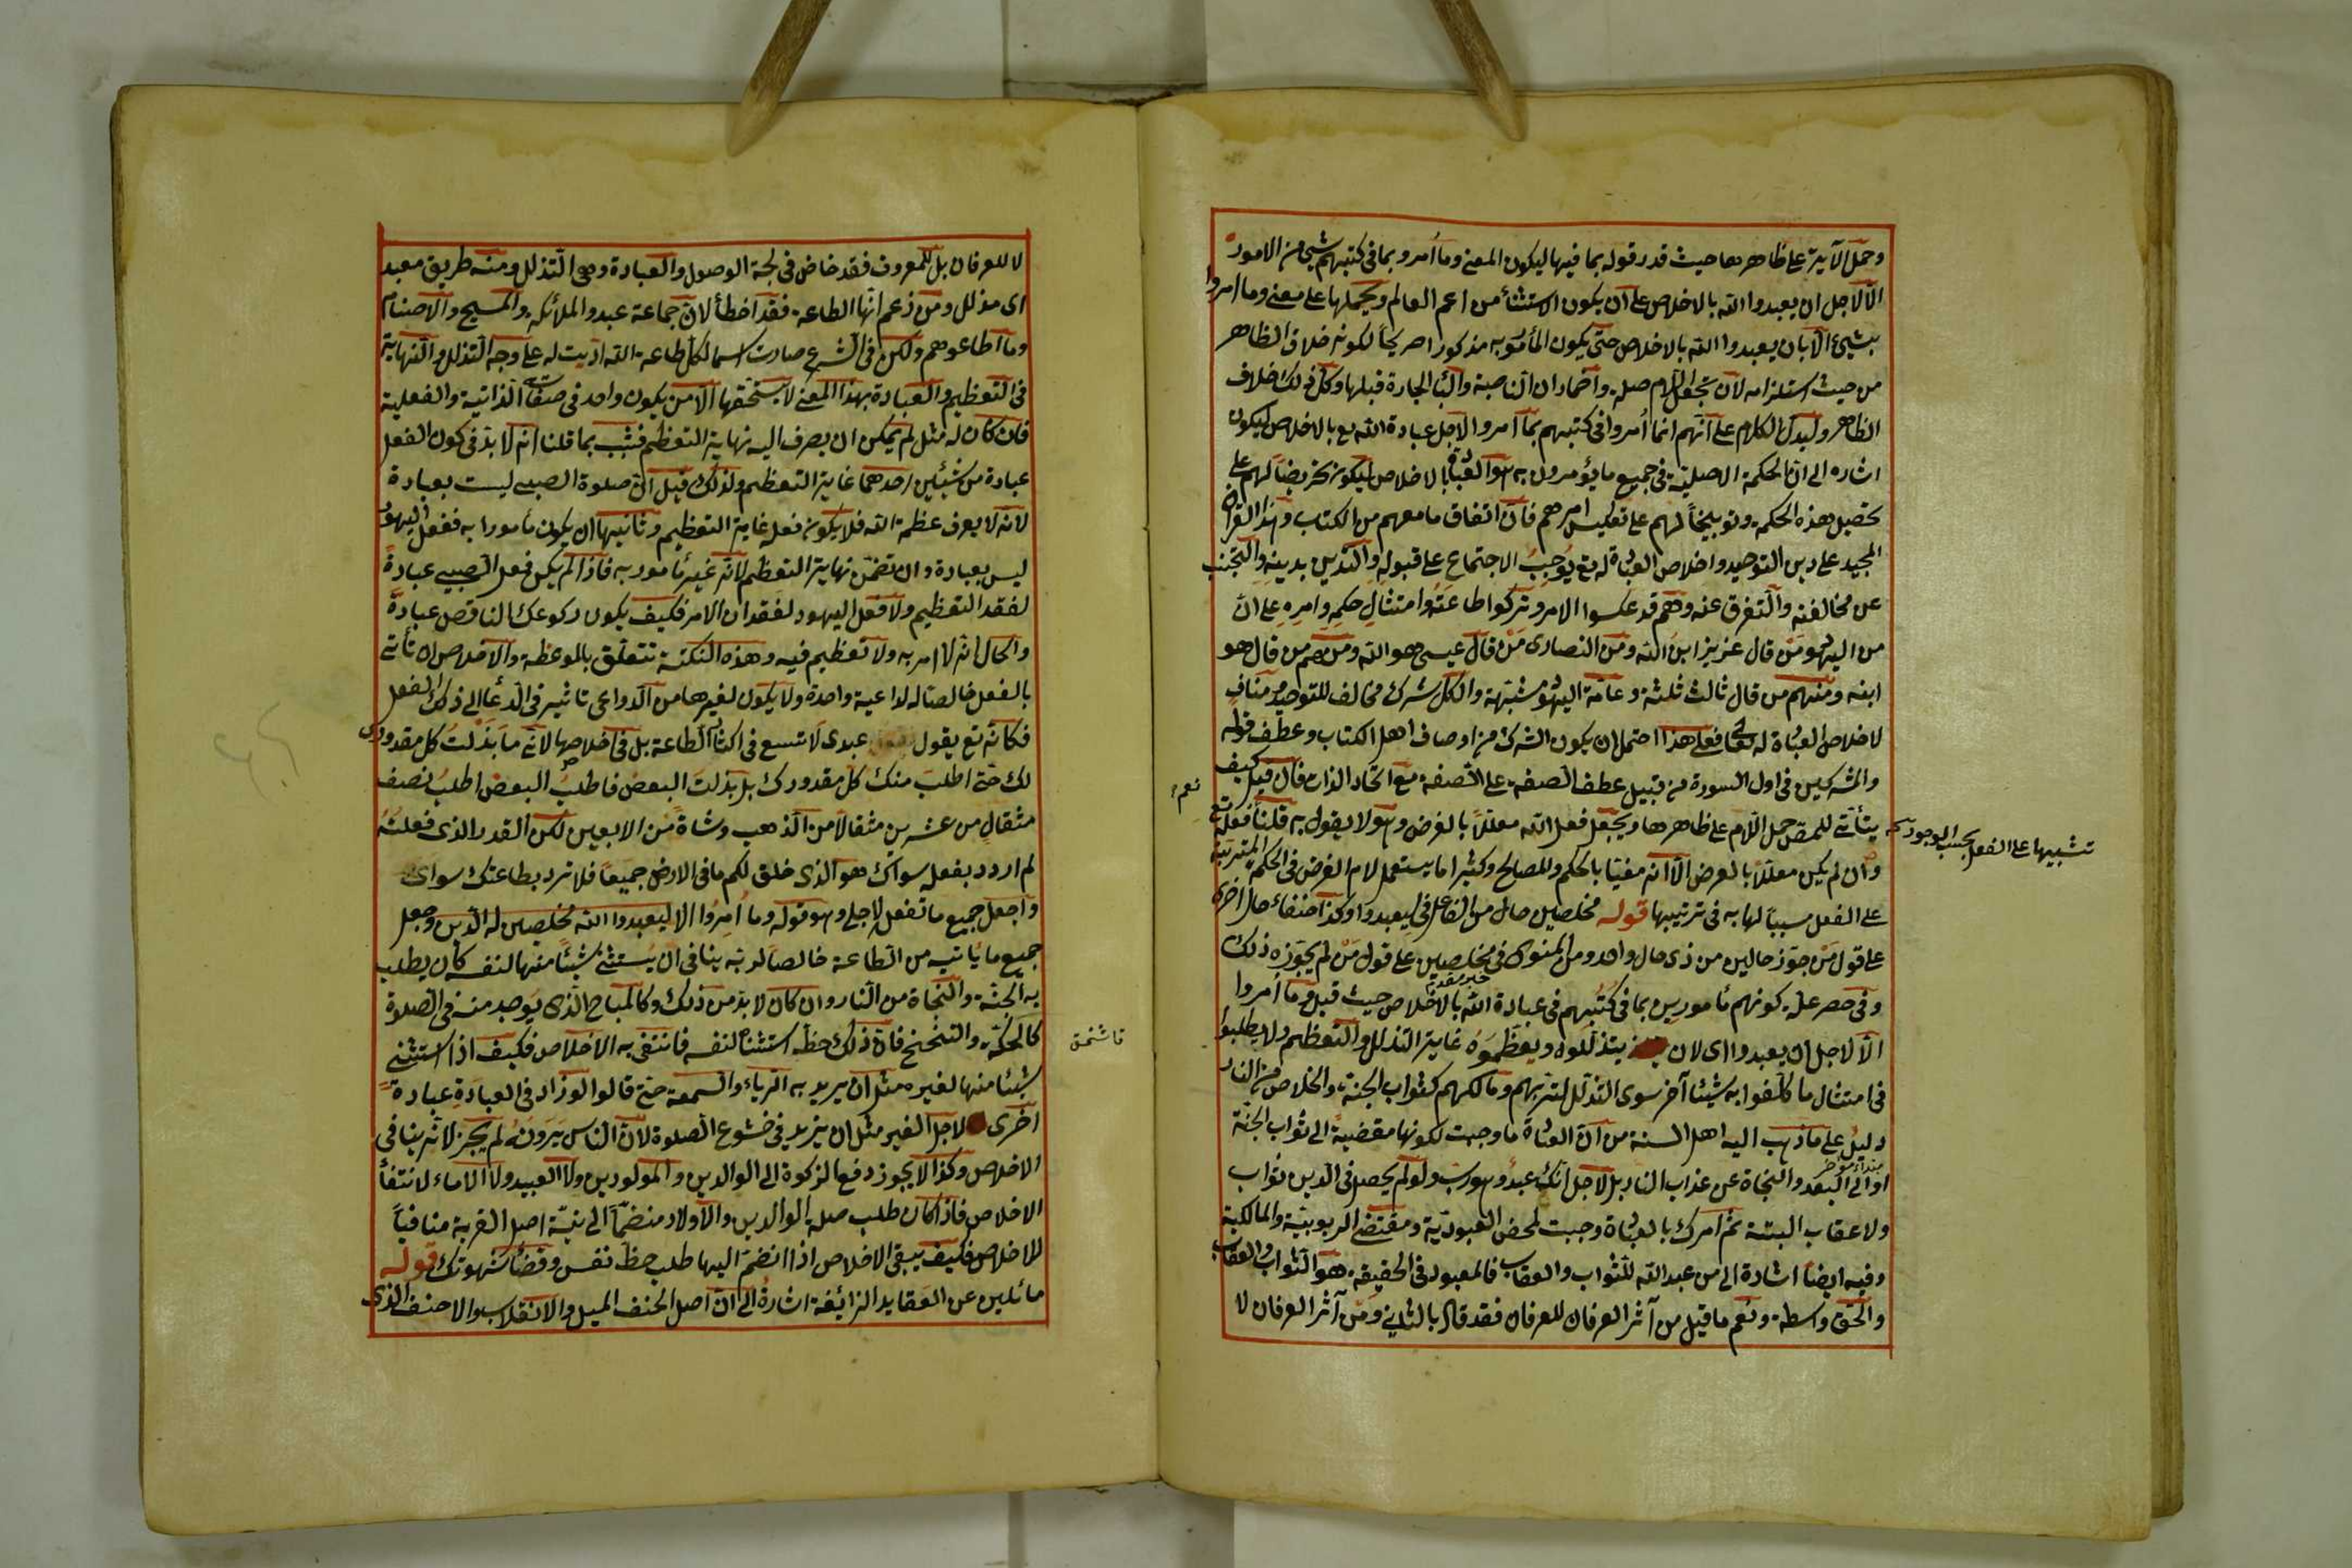 وحمل الآية على ظاهرها حيث قدر قوله بما فيها ليكون المعنى وما أمروا بما فى كتبهم شئ من الامور
الا لاجل ان يعبدوا الله بالاخلاص على ان يكون الاستثناء من اعم العالم ويحملها على معنى وما امروا
بشئ الا بان يعبدوا الله بالاخلاص حتى يكون المأمور به مذكورا صريحا لكونه خلاف الظاهر
من حيث استلزامه لان يجعل اللام صلة واضمار ان الناصبة والباء الجارة قبلها وكل ذلك خلاف
الظاهر وليدل الكلام على انهم انما أمروا فى كتبهم بما امروا لاجل عبادة الله تع بالاخلاص ليكون
اشارة الى ان الحكمة الاصلية فى جميع ما يؤمرون به هو العبادة بالاخلاص ليكون تحريضا لهم على
تحصيل هذه الحكمة وتوبيخا لهم على تعكيس امرهم فان اتفاق ما معهم من الكتاب وهذا القرآن
المجيد على دين التوحيد واخلاص العبادة له تع يوجب الاجتماع على قبوله والتدين بدينه والتجنب
عن مخالفته والتفرق عنه وهم قد عكسوا الامر وتركوا طاعته وامتثال حكمه وامره على ان
من اليهود من قال عزير ابن الله ومن النصارى من قال عيسى هو الله ومنهم من قال هو
ابنه ومنهم من قال ثالث ثلثة وعامة اليهود مشبهة والكل شرك مخالف للتوحيد مناف
لاخلاص العبادة له تعالى فعلى هذا احتمل ان يكون الشرك من اوصاف اهل الكتاب وعطف قوله
والمشركين فى اول السورة من قبيل عطف الصفة على الصفة مع اتحاد الذات فان قيل كيف
يتأتى للمص حمل اللام على ظاهرها ويجعل فعل الله معللا بالغرض وهو لا يقول به قلنا فعله تع
وان لم يكن معللا بالغرض الا انه مغيا بالحكم والمصالح وكثيرا ما يستعمل لام الغرض فى الحكم المترتبة
على الفعل سببا لها به فى ترتيبها قوله مخلصين حال من الفاعل فى ليعبدوا وكذا حنفاء حال اخرى
على قول من جوز حالين من ذى حال واحد ومن المنوى فى مخلصين على قول من لم يجوزه ذلك
خبر مقدم
وفى حصر علة كونهم مأمورين بما فى كتبهم فى عبادة الله بالاخلاص حيث قيل وما أمروا
الا لاجل ان يعبدوا اى لان يتذللوه ويعظموه غاية التذلل والتعظيم ولا يطلبوا
فى امتثال ما كلفوا به شيئا آخر سوى التذلل لربهم ومالكهم كثواب الجنة والخلاص من النار
دليل على ما ذهب اليه اهل السنة من ان العبادة ما وجبت لكونها مفضية الى ثواب الجنة
مبتداء مؤخر
او الى البعد والنجاة عن عذاب النار بل لاجل انك عبد وهو رب ولو لم يحصل فى الدين ثواب
ولا عقاب البتة ثم امرك بالعبادة وجبت لمحض العبودية ومقتضى الربوبية والمالكية
وفيه ايضا اشارة الى من عبد الله للثواب والعقاب فالمعبود فى الحقيقة هو الثواب والعقاب
والحق واسطة ونعم ما قيل من آثر العرفان للعرفان فقد قال بالثانى ومن آثر العرفان لا
تشبيها على الفعل بحسب الوجود
نعم
لا للعرفان بل للمعروف فقد خاض فى لجة الوصول والعبادة وهى التذلل ومنه طريق معبد
اى مذلل ومن زعم انها الطاعة فقد اخطأ لان جماعة عبدوا الملائكة والمسيح والاصنام
وما اطاعوهم ولكن فى الشرع صارت اسما لكل طاعة الله اديت له على وجه التذلل والنهاية
فى التعظيم والعبادة بهذا المعنى لا يستحقها الا من يكون واحد فى صفاته الذاتية والفعلية
فان كان له مثل لم يمكن ان يصرف اليه نهاية التعظيم فثبت بما قلنا انه لا بد فى كون الفعل
عبادة من شيئين احدهما غاية التعظيم ولذلك قيل ان صلوة الصبى ليست بعبادة
لانه لا يعرف عظمة الله فلا يكون فعله غاية التعظيم وثانيها ان يكون مأمورا به ففعل اليهود
ليس بعبادة وان تضمن نهاية التعظيم لانه غير مأمور به فاذا لم يكن فعل الصبى عبادة
لفقد التعظيم ولا فعل اليهود لفقدان الامر فكيف يكون ركوعك الناقص عبادة
والحال انه لا امر به ولا تعظيم فيه وهذه النكتة تتعلق بالموعظة والاخلاص ان تأتى
بالفعل خالصا له لداعية واحدة ولا يكون لغيرها من الدواعى تاثير فى الدعاء الى ذلك الفعل
فكانه تع يقول عبدى لا تسع فى اكثار الطاعة بل فى اخلاصها لانه ما بذلت كل مقدورى
لك حتى اطلب منك كل مقدورك بل بذلت البعض فاطلب البعض اطلب نصف
مثقال من عشرين مثقالا من الذهب وشاة من الاربعين لكن القدر الذى فعلته
لم ارد بفعله سواك هو الذى خلق لكم ما فى الارض جميعا فلا ترد بطاعتك سواى
واجعل جميع ما تفعل لاجلى وهو قوله وما أمروا الا ليعبدوا الله مخلصين له الدين وجعل
جميع ما ياتيه من الطاعة خالصا لربه ينافى ان يستثنى شيئا منها لنفسه كأن يطلب
به الجنة والنجاة من النار وان كان لا بد من ذلك وكالمباح الذى يوجد منه فى الصلوة
كالحكة والتنحنح فان ذلك حظ استثناه لنفسه فانتفى به الاخلاص فكيف اذا استثنى
شيئا منها لغيره مثل ان يريد به الرياء والسمعة حتى قالوا لو زاد فى العبادة عبادة
اخرى لاجل الغير مثل ان يزيد فى خشوع الصلوة لان الناس يرونه لم يجز لانه ينافى
الاخلاص وكذا لا يجوز دفع الزكوة الى الوالدين والمولودين ولا العبيد ولا الاماء لانتفاء
الاخلاص فاذا كان طلب صلة الوالدين والاولاد منضما الى نية اصل القربة منافيا
للاخلاص فكيف يبقى الاخلاص اذا انضم اليها طلب حظ نفس وقضاء شهوتك قوله
مائلين عن العقايد الزائغة اشارة الى ان اصل الحنف الميل والانقلاب والاحنف الذى